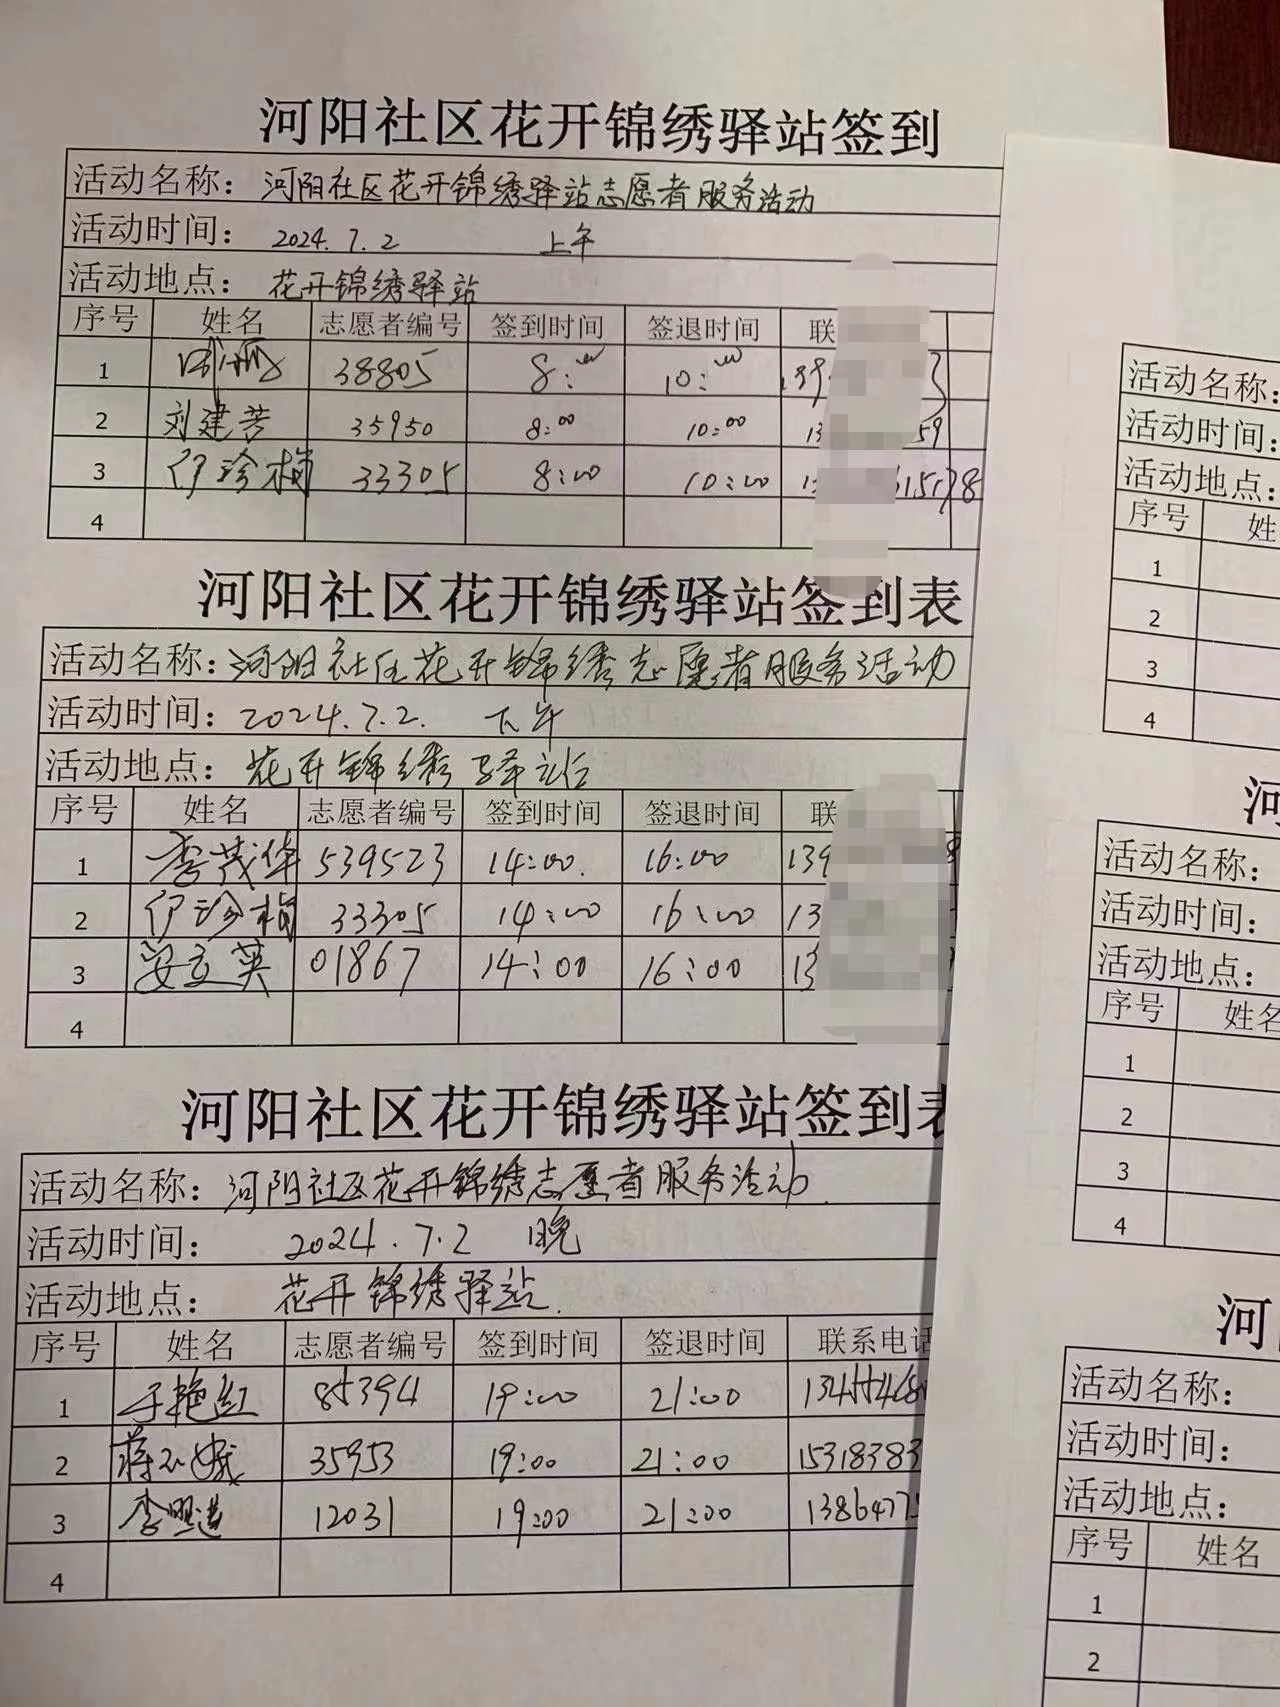 河阳社区花开锦绣驿站签到
活动名称：河阳社区花开锦绣驿站志愿者服务活动
活动时间：2024.7.2 上午
活动地点：花开锦绣驿站
序号 姓名 志愿者编号 签到时间 签退时间 联
1 38805 8:00 10:00 139
2 刘建芳 35950 8:00 10:00 13 59
3 伊珍梅 33305 8:00 10:00 1
4
河阳社区花开锦绣驿站签到表
活动名称：河阳社区花开锦绣志愿者服务活动
活动时间：2024.7.2. 下午
活动地点：花开锦绣驿站
序号 姓名 志愿者编号 签到时间 签退时间 联
1 李茂华 539523 14:00. 16:00 139
2 伊珍梅 33305 14:00 16:00 13
3 安立英 01867 14:00 16:00 13
4
河阳社区花开锦绣驿站签到表
活动名称：河阳社区花开锦绣志愿者服务活动.
活动时间：2024.7.2 晚
活动地点：花开锦绣驿站.
序号 姓名 志愿者编号 签到时间 签退时间 联系电话
1 于艳红 85394 19:00 21:00
2 35953 19:00 21:00 15318383
3 李明莲 12031 19:00 21:00 1386477
4
活动名称：
活动时间：
活动地点：
序号 姓
1
2
3
4
河
活动名称：
活动时间：
活动地点：
序号 姓名
1
2
3
4
河
活动名称：
活动时间：
活动地点：
序号 姓名
1
2